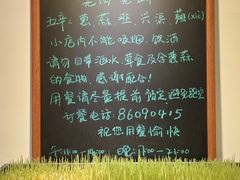 五辛：葱、蒜、韭、兴渠、薤(xiè)
小店内不能吸烟、饮酒
请勿自带酒水、荤食及含葱蒜
的食物，感谢配合！
用餐请尽量提前预定，避免
订餐电话：86090415
祝您用餐愉快